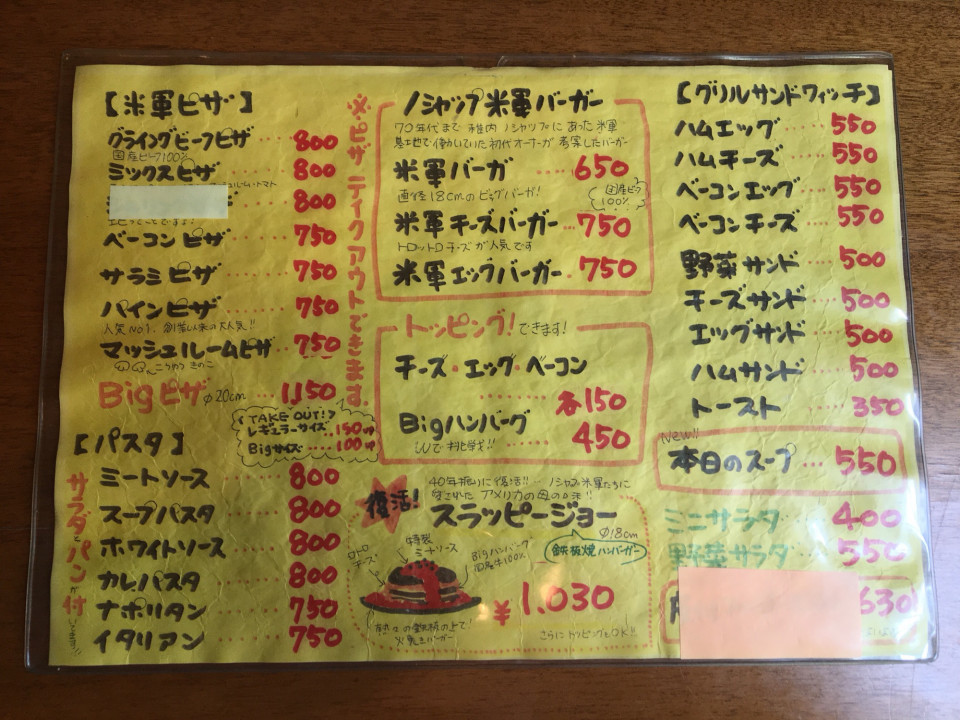 【米軍ピザ】
グライングビーフピザ 800
国産ビーフ100%
ミックスピザ 800
800
ベーコンピザ 750
サラミピザ 750
パインピザ 750
人気No1. 創業以来の大人気!!
マッシュルームピザ 750
Bigピザ φ20cm 1,150
<TAKE OUT!>
レギュラーサイズ 150円
Bigサイズ 100円
※ピザテイクアウトできます.
【パスタ】
ミートソース 800
スープパスタ 800
ホワイトソース 800
カレーパスタ 800
ナポリタン 750
イタリアン 750
サラダとパンが付いてます!!
ノシャップ米軍バーガー
70年代まで稚内ノシャップにあった米軍
基地で働いていた初代オーナーが考案したバーガー
米軍バーガ 650
直径18cmのビッグバーガ!
国産ビーフ100%
米軍チーズバーガー 750
トロットロチーズが人気です
米軍エッグバーガー 750
トッピング!できます!
チーズ・エッグ・ベーコン
各150
Bigハンバーグ 450
Wで挑戦!!
復活!
40年振りに復活!! ノシャップ米軍たちに
愛された アメリカの母の味!!
スラッピージョー
φ18cm
鉄板焼ハンバーガー
トロトロチーズ
特製ミートソース
Bigハンバーグ
国産牛100%
¥1,030
熱々の鉄板の上で!
さらにトッピングもOK!!
【グリルサンドウィッチ】
ハムエッグ 550
ハムチーズ 550
ベーコンエッグ 550
ベーコンチーズ 550
野菜サンド 500
チーズサンド 500
エッグサンド 500
ハムサンド 500
トースト 350
New!!
本日のスープ 550
ミニサラダ 400
野菜サラダ 550
630